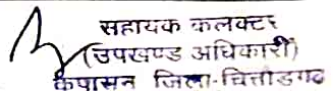 सहायक कलक्टर
(उपखण्ड अधिकारी)
कपासन जिला-चित्तौडगढ